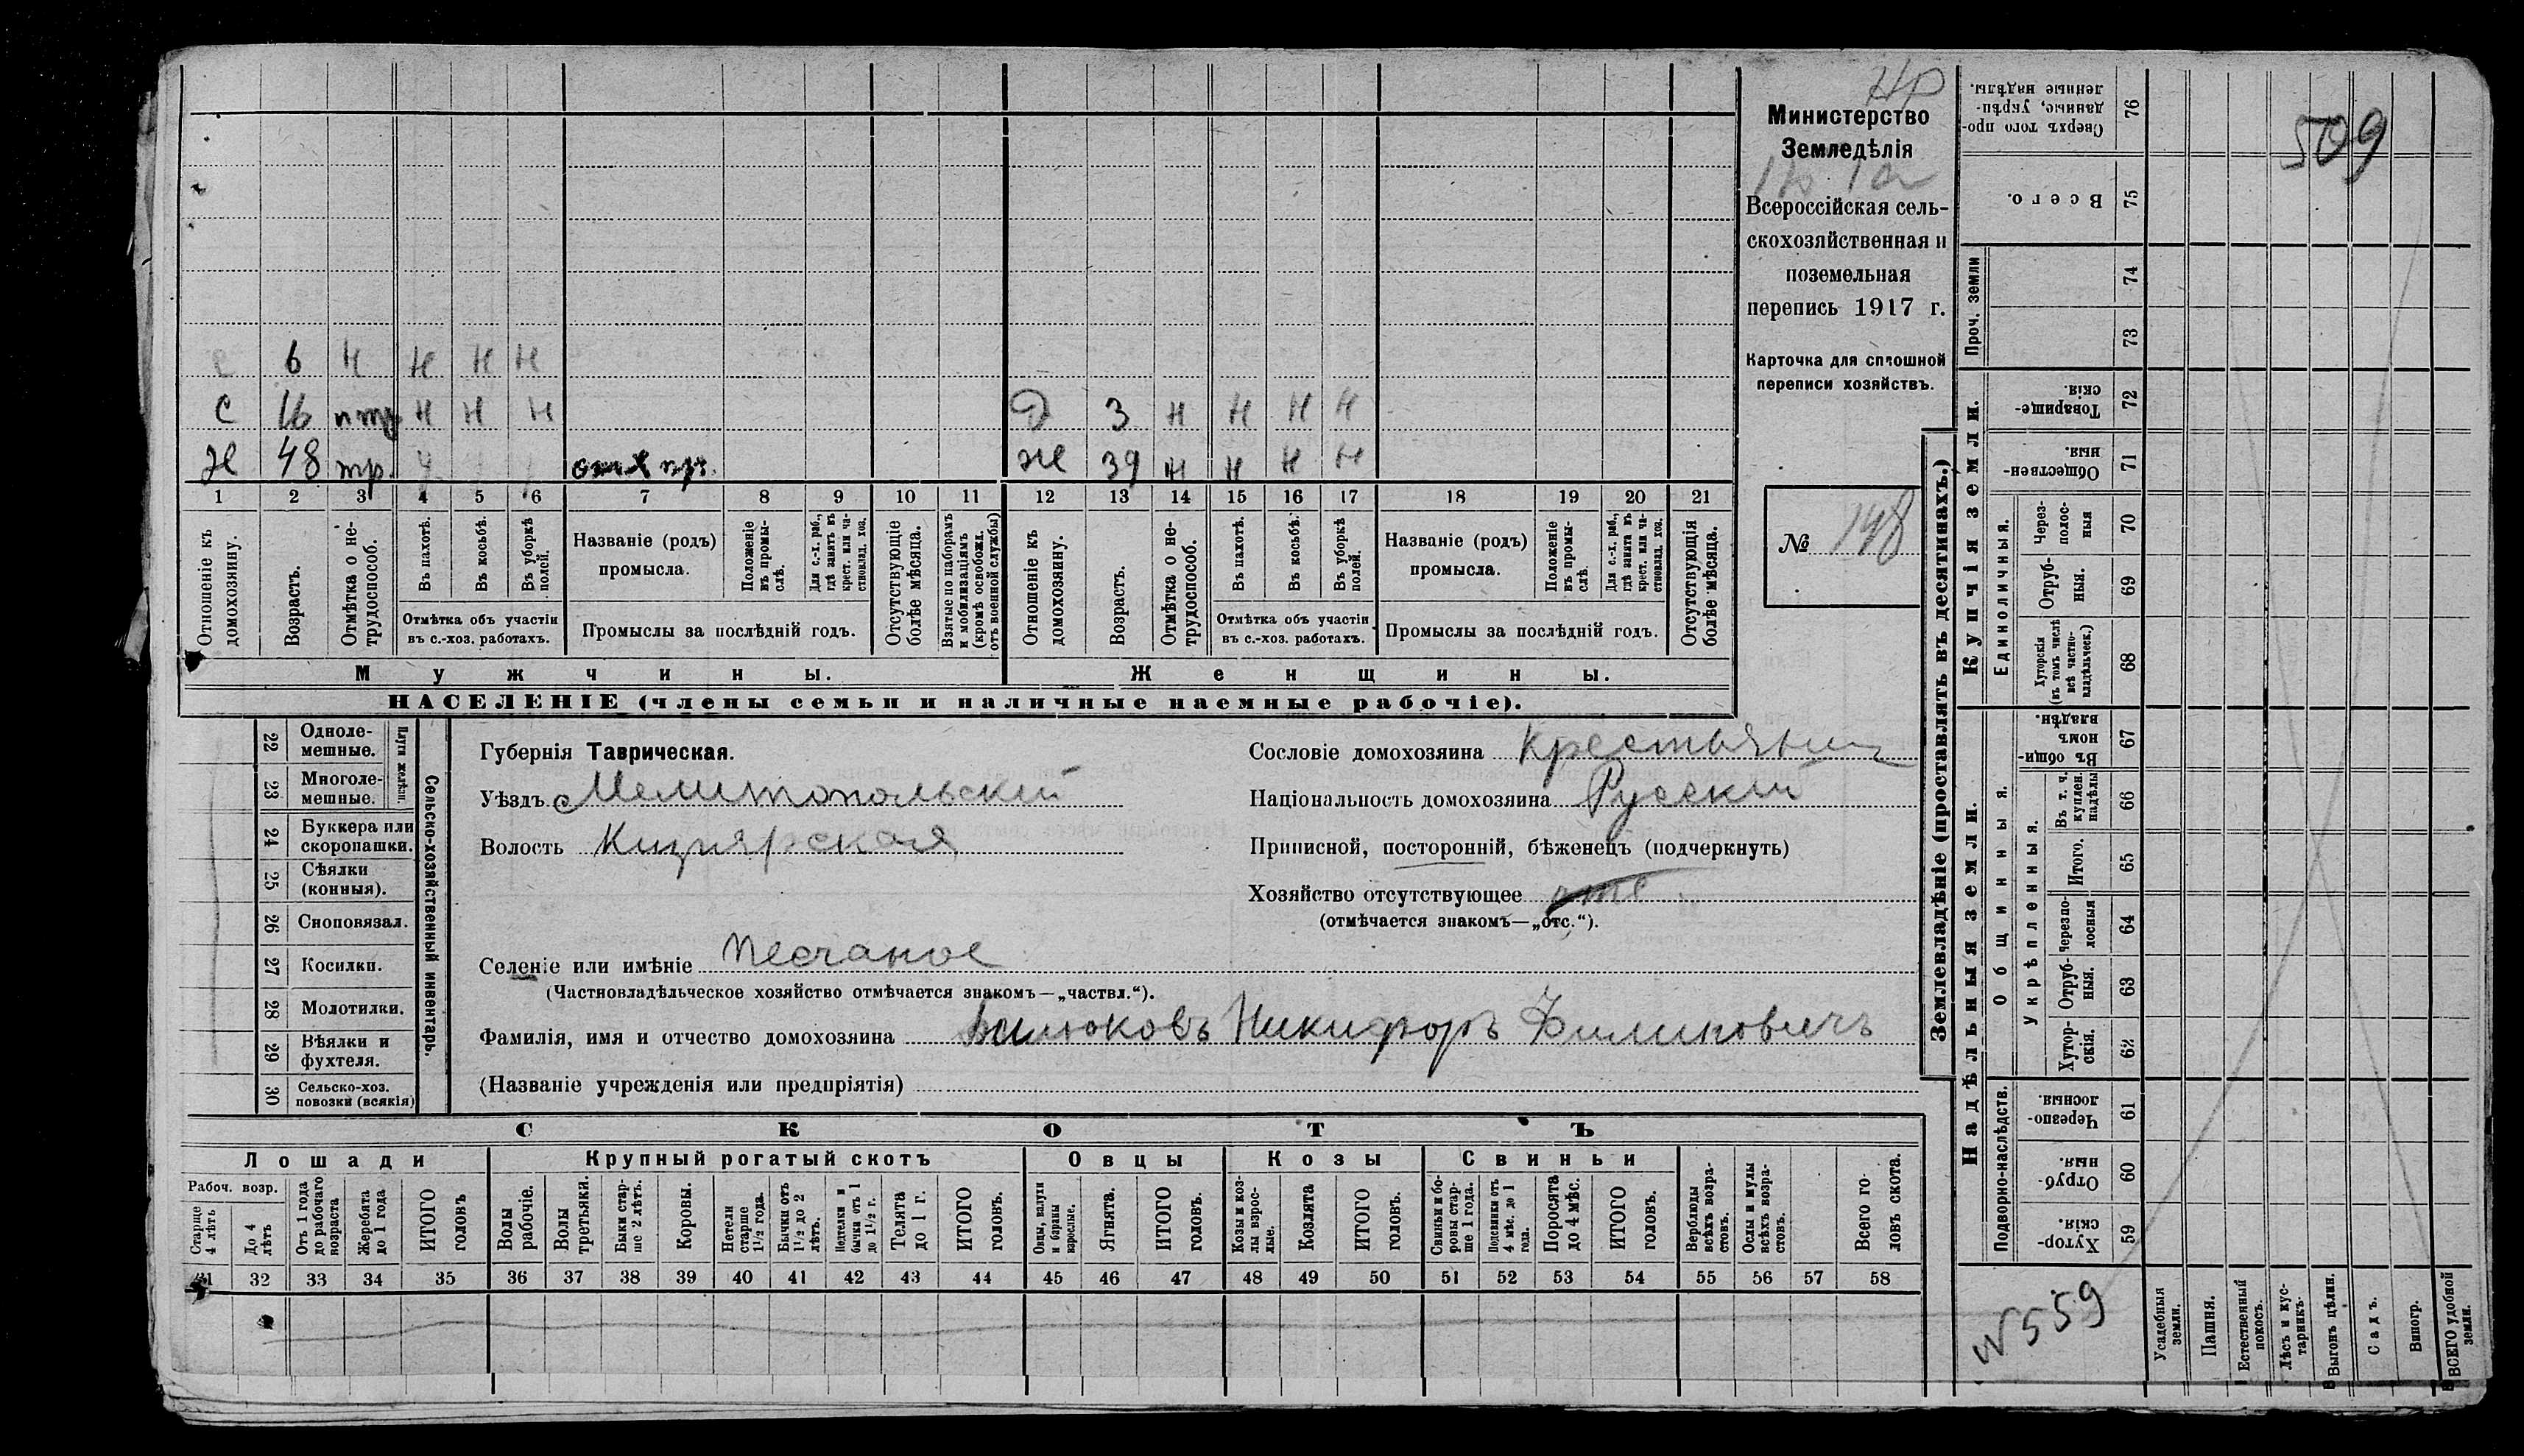 с 6 н н н н
с 16 н н н
д 3 н н н н
х 48 тр.
ж 39 н н н н
1 2 3 4 5 6 7 8 9 10 11 12 13 14 15 16 17 18 19 20 21
Отношеніе къ домохозяину.
Возрастъ.
Отмѣтка о нетрудоспособ.
Въ пахотѣ.
Въ косьбѣ.
Въ уборкѣ полей.
Отмѣтка объ участіи
въ с.-хоз. работахъ.
Названіе (родъ)
промысла.
Положеніе въ промыслѣ.
Для с.-х. раб., гдѣ занятъ въ крест. или частновлад. хоз.
Промыслы за послѣдній годъ.
Отсутствующіе болѣе мѣсяца.
Взятые по наборамъ и мобилизаціямъ (кромѣ освобожд. отъ военной службы)
Отношеніе къ домохозяину.
Возрастъ.
Отмѣтка о нетрудоспособ.
Въ пахотѣ.
Въ косьбѣ.
Въ уборкѣ полей.
Отмѣтка объ участіи
въ с.-хоз. работахъ.
Названіе (родъ)
промысла.
Положеніе въ промыслѣ.
Для с.-х. раб., гдѣ занята въ крест. или частновлад. хоз.
Промыслы за послѣдній годъ.
Отсутствующія болѣе мѣсяца.
Мужчины.
Женщины.
НАСЕЛЕНІЕ (члены семьи и наличные наемные рабочіе).
Министерство
Земледѣлія
Всероссійская сель-
скохозяйственная и
поземельная
перепись 1917 г.
Карточка для сплошной
переписи хозяйствъ.
№ 148
22 Одноле-
мешные.
23 Многоле-
мешные.
Плуги желѣзн.
24 Буккера или
скоропашки.
25 Сѣялки
(конныя).
26 Сноповязал.
27 Косилки.
28 Молотилки.
29 Вѣялки и
фухтеля.
30 Сельско-хоз.
повозки (всякія)
Сельско-хозяйственный инвентарь.
Губернія Таврическая.
Уѣздъ Мелитопольскій
Волость Кизиярская
Сословіе домохозяина Крестьянин
Національность домохозяина Русскій
Приписной, посторонній, бѣженецъ (подчеркнуть)
Хозяйство отсутствующее отс.
(отмѣчается знакомъ—„отс.“).
Селеніе или имѣніе Песчаное
(Частновладѣльческое хозяйство отмѣчается знакомъ—„частвл.“).
Фамилія, имя и отчество домохозяина Никифоръ Филиповичъ
(Названіе учрежденія или предпріятія)
СКОТЪ
Лошади
Крупный рогатый скотъ
Овцы
Козы
Свиньи
Рабоч. возр.
Старше 4 лѣтъ
До 4 лѣтъ
Отъ 1 года до рабочаго возраста
Жеребята до 1 года
ИТОГО головъ
Волы рабочіе.
Волы третьяки.
Быки старше 2 лѣтъ.
Коровы.
Нетели старше 1½ года.
Бычки отъ 1½ до 2 лѣтъ.
Подтелки и бычки отъ 1 до 1½ г.
Телята до 1 г.
ИТОГО головъ.
Овцы, валухи и бараны взрослые.
Ягнята.
ИТОГО головъ.
Козы и козлы взрослые.
Козлята
ИТОГО головъ.
Свиньи и боровы старше 1 года.
Подсвинки отъ 4 мѣс. до 1 года.
Поросята до 4 мѣс.
ИТОГО головъ.
Верблюды всѣхъ возрастовъ.
Ослы и мулы всѣхъ возрастовъ.
Всего головъ скота.
31 32 33 34 35 36 37 38 39 40 41 42 43 44 45 46 47 48 49 50 51 52 53 54 55 56 57 58
Землевладѣніе (проставлять въ десятинахъ.)
Надѣльныя земли.
Купчія земли.
Проч. земли
Сверхъ того проданные, укрѣпленные надѣлы. 76
Всего. 75
74
73
Товарищескія. 72
Общественныя. 71
Единоличныя.
Черезполосныя 70
Отрубныя. 69
Хуторскія (въ томъ числѣ всѣ частновладѣльческ.) 68
Общинныя.
Въ общинномъ владѣн. 67
Укрѣпленныя.
Въ т. ч. куплен. надѣлы 66
Итого. 65
Черезполосныя 64
Отрубныя. 63
Хуторскія. 62
Подворно-наслѣдств.
Черезполосныя. 61
Отрубныя. 60
Хуторскія. 59
Усадебныя земли.
Пашня.
Естественный покосъ.
Лѣсъ и кустарникъ.
Выгонъ цѣлин.
Садъ.
Виногр.
ВСЕГО удобной земли.
509
№559